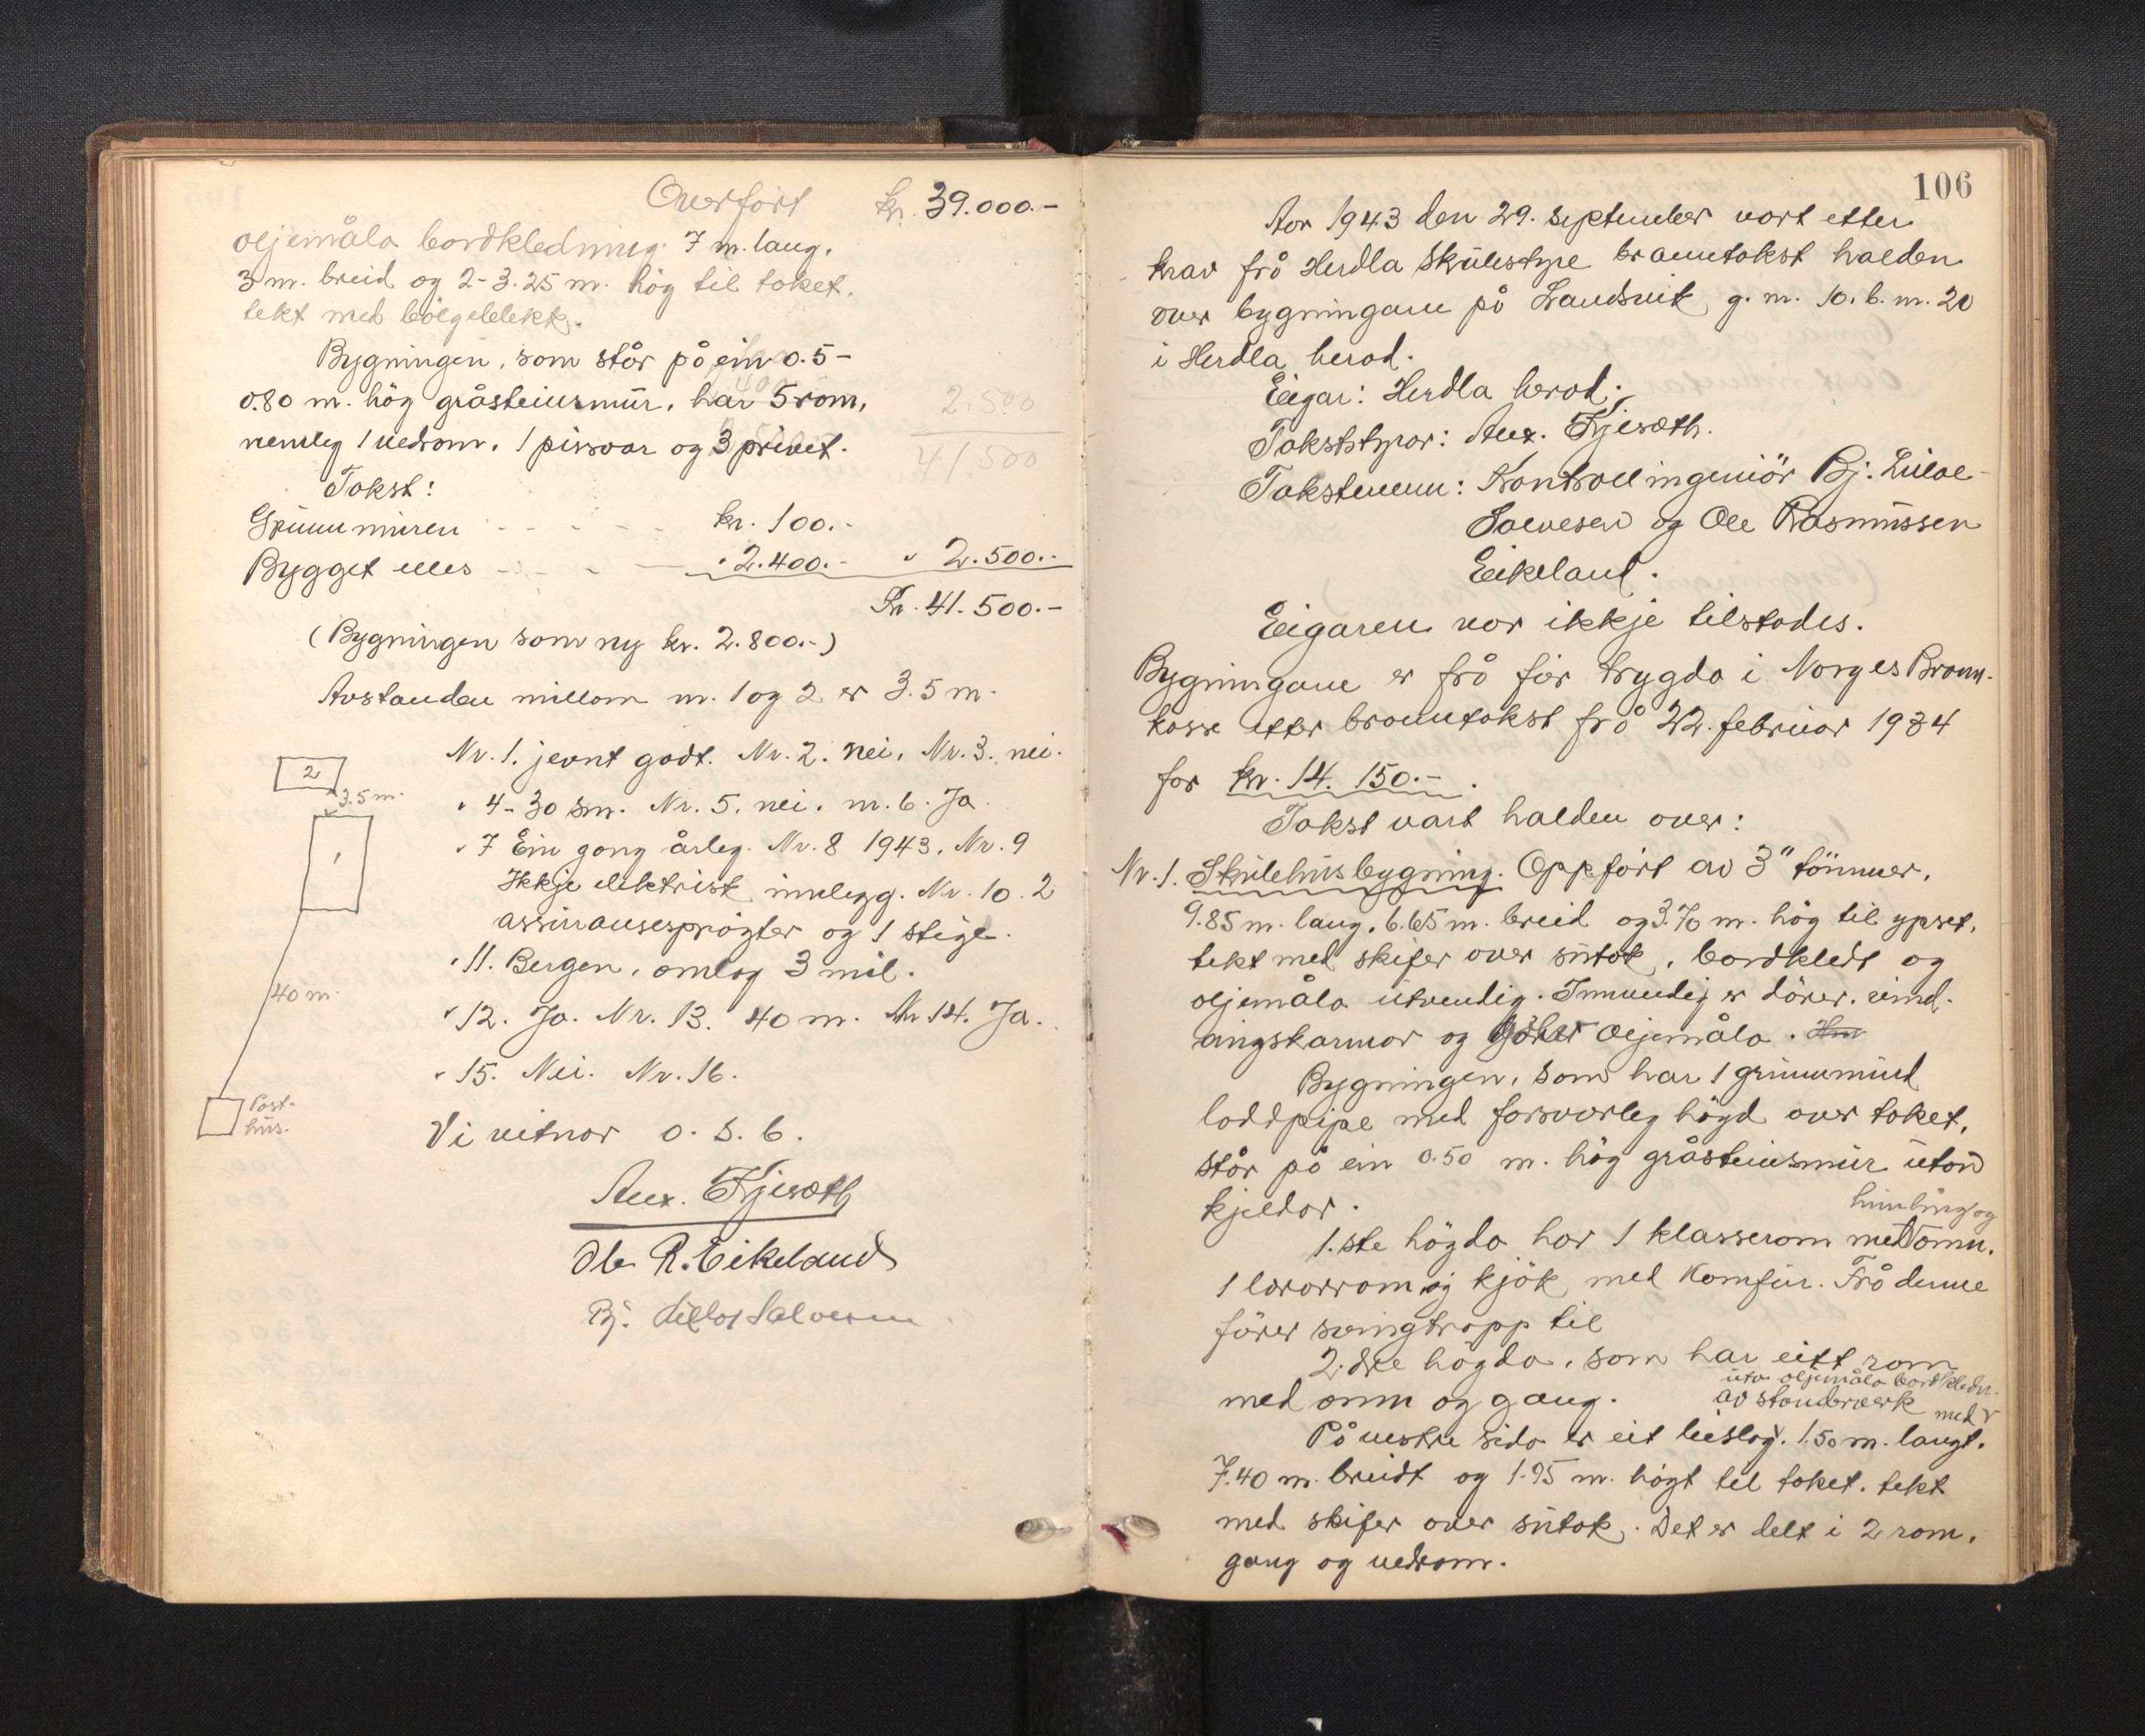 Overført kr. 39.000.-
oljemåla bordkledning. 7 m. lang,
3 m. breid og 2-3.25 m. høg til taket,
tekt med bølgeblekk.
Bygningen, som står på ein 0.5-
0.80 m. høg gråsteinsmur, har 5 rom,
nemleg 1 vedrom, 1 pissoar og 3 privet.
2.500
41.500
Takst:
Grunnmuren - - - - - kr. 100.-
Bygget elles - - - - " 2.400.- " 2.500.-
Kr. 41.500.-
(Bygningen som ny kr. 2.800.-)
Avstanden millom nr. 1 og 2 er 3.5 m.
Nr. 1. jevnt godt. Nr. 2. nei. Nr. 3. nei.
" 4- 30 sm. Nr. 5. nei. nr. 6. Ja.
" 7 Ein gong årleg. Nr. 8 1943. Nr. 9
Ikkje elektrisk innlegg. Nr. 10. 2
assuransesprøyter og 1 stige.
" 11. Bergen, omlag 3 mil.
" 12. Ja. Nr. 13. 40 m. Nr 14. Ja.
" 15. Nei. Nr. 16.
2
3.5 m.
1
40 m.
Post-
hus.
Vi vitnar o. s. b.
Ole R. Eikeland
106
Aar 1943 den 29. september vart etter
krav frå Herdla Skulestyre branntakst halden
over bygningane på Landsvik g. nr. 10. b. nr. 20
i Herdla herad.
Eigar: Herdla herad.
Takststyrar:
Takstmenn: Kontrollingeniør Bj.
Salvesen og Ole Rasmussen
Eikeland.
Eigaren var ikkje tilstades.
Bygningane er frå før trygda i Norges Brann-
kasse etter branntakst frå 22. februar 1934
for kr. 14.150.-.
Takst vart halden over:
Nr. 1. Skulehusbygning. Oppført av 3" tømmer,
9.85 m. lang, 6.65 m. breid og 3.70 m. høg til ypset,
tekt med skifer over sutak, bordkledt og
oljemåla utvendig. Innvendig er dører, vind-
augskarmar og oljemåla.
Bygningen, som har 1 grunnmurt
loddpipe med forsvarleg høgd over taket,
står på ein 0.50 m. høg gråsteinsmur utan
kjeldar.
himling og
1.ste høgda har 1 klasserom med omn,
1 lærarrom og kjøk med komfur. Frå denne
fører svingtrapp til
2.dre høgda, som har eitt rom
med omn og gang.
utv. oljemåla bordkledn.
av standerverk med
På vestre sida er eit bislag, 1.50 m. langt,
7.40 m. breidt og 1.95 m. høgt til taket, tekt
med skifer over sutak. Det er delt i 2 rom,
gang og vedrom.